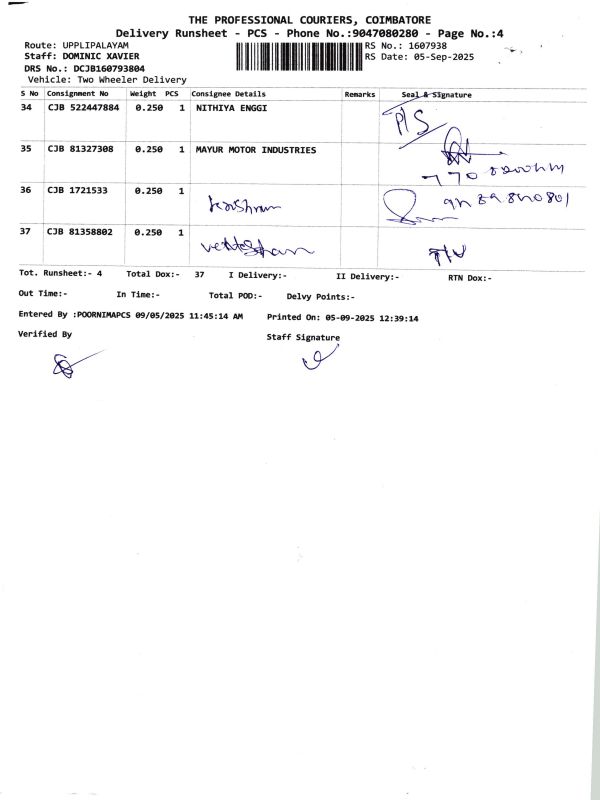 THE PROFESSIONAL COURIERS, COIMBATORE
Delivery Runsheet - PCS - Phone No.:9047080280 - Page No.:4
Route: UPPLIPALAYAM RS No.: 1607938
Staff: DOMINIC XAVIER RS Date: 05-Sep-2025
DRS No.: DCJB160793804
Vehicle: Two Wheeler Delivery
S No Consignment No Weight PCS Consignee Details Remarks Seal & Signature
34 CJB 522447884 0.250 1 NITHIYA ENGGI P/S
35 CJB 81327308 0.250 1 MAYUR MOTOR INDUSTRIES
36 CJB 1721533 0.250 1
37 CJB 81358802 0.250 1
Tot. Runsheet:- 4 Total Dox:- 37 I Delivery:- II Delivery:- RTN Dox:-
Out Time:- In Time:- Total POD:- Delvy Points:-
Entered By :POORNIMAPCS 09/05/2025 11:45:14 AM Printed On: 05-09-2025 12:39:14
Verified By Staff Signature